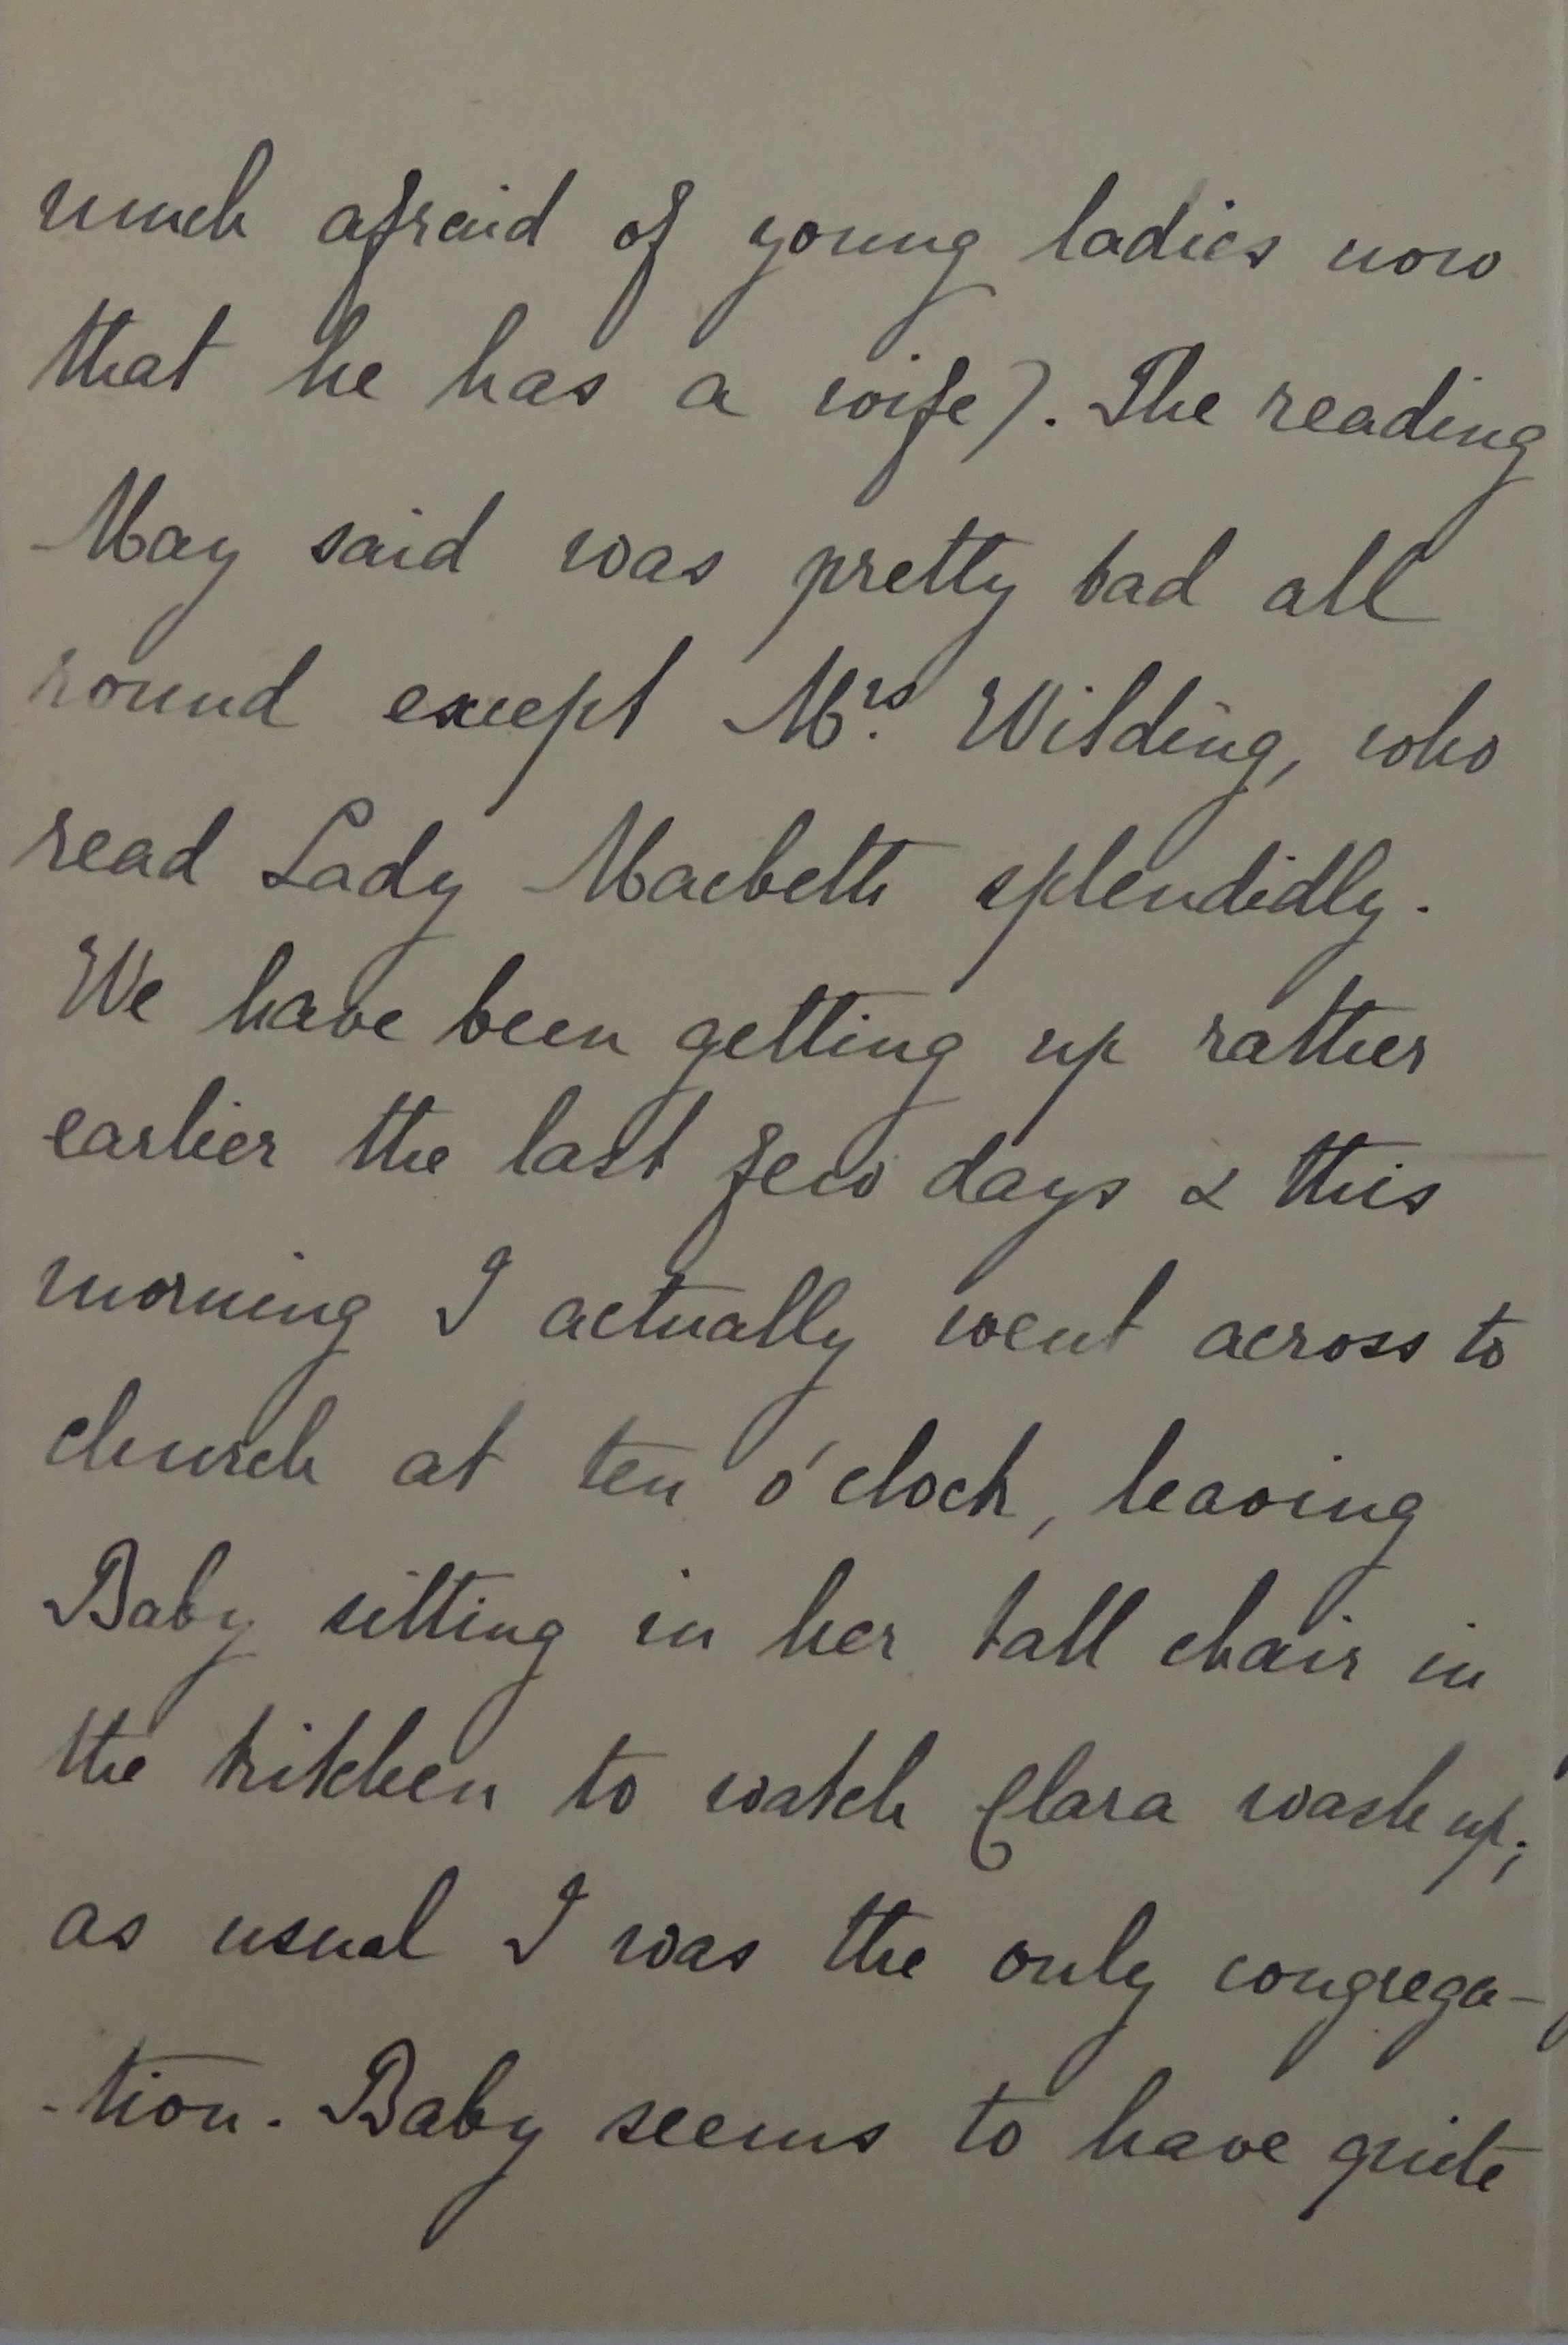 much afraid of young ladies now
that he has a wife). The reading
May said was pretty bad all
round except Mrs. Wilding, who
read Lady Macbeth splendidly.
We have been getting up rather
earlier the last few days & this
morning I actually went across to
church at ten o'clock, leaving
Baby sitting in her tall chair in
the kitchen to watch Clara wash up;
as usual I was the only congrega-
-tion. Baby seems to have quite